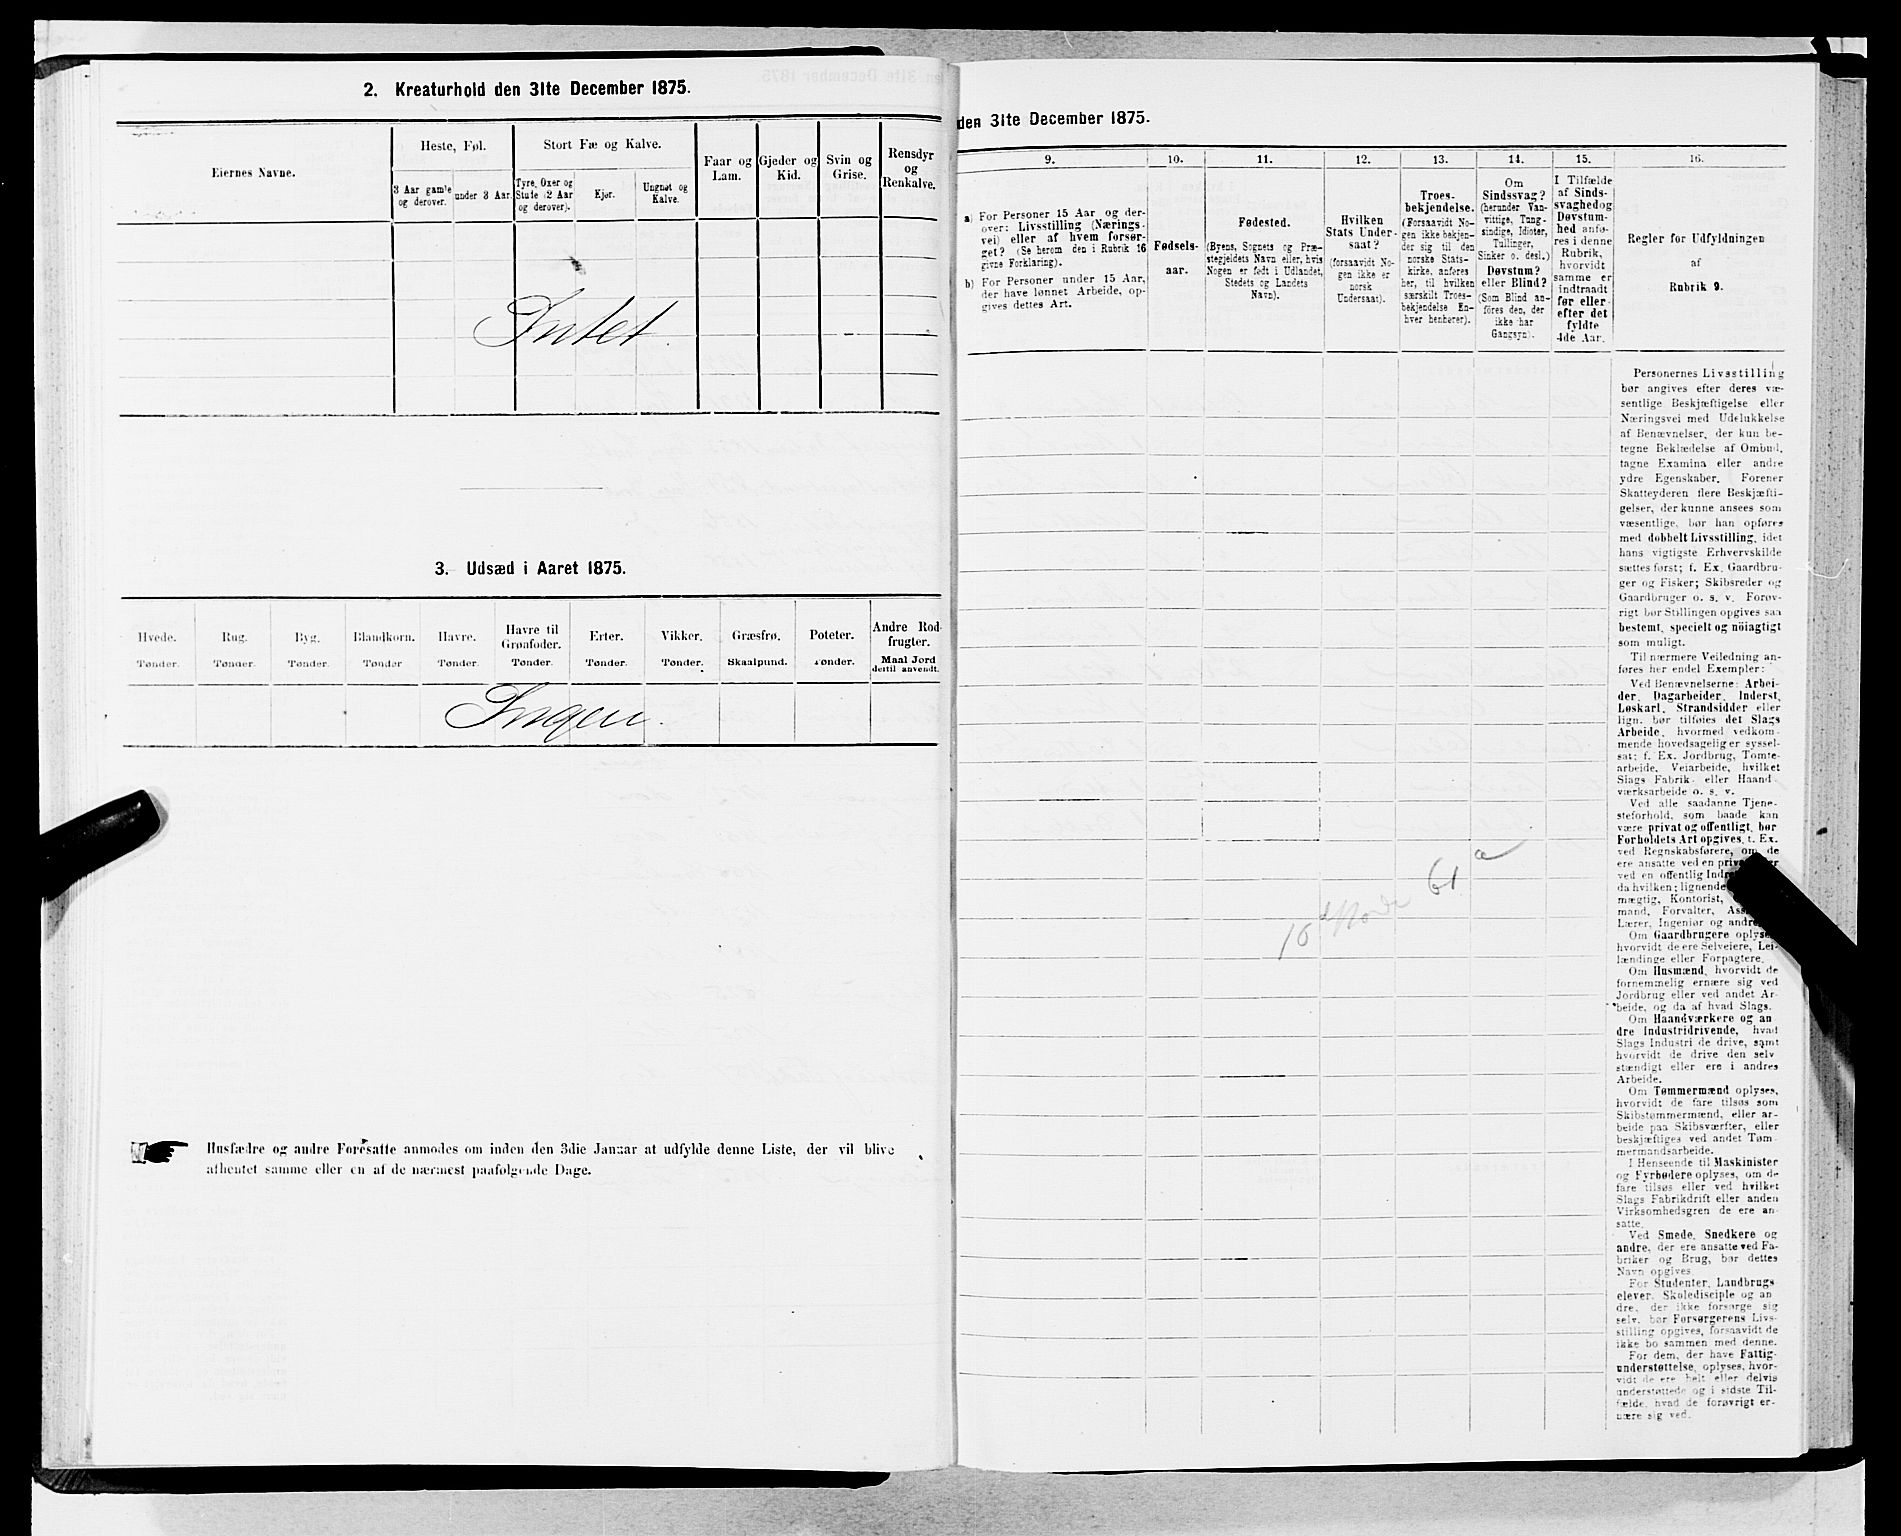 2. Kreaturhold den 31te December 1875.
Eiernes Navne.
Heste, Føl.
Stort Fæ og Kalve.
Faar og
Lam.
Gjeder og
Kid.
Svin og
Grise.
Rensdyr
og
Renkalve.
3 Aar gamle
og derover.
under 3 Aar.
Tyre, Oxer og
Stude (2 Aar
og derover).
Kjør.
Ungnøt og
Kalve.
Intet.
3. Udsæd i Aaret 1875.
Hvede.
Rug.
Byg.
Blandkorn.
Havre.
Havre til
Grønfoder.
Erter.
Vikker.
Græsfrø.
Poteter.
Andre Rod-
frugter.
Tønder.
Tønder.
Tønder.
Tønder
Tønder.
Tønder.
Tønder.
Tønder.
Skaalpund.
Tønder.
Maal Jord
dertil anvendt.
Ingen.
Husfædre og andre Foresatte anmodes om inden den 3die Januar at udfylde denne Liste, der vil blive
afhentet samme eller en af de nærmest paafølgende Dage.
den 31te December 1875.
9.
10.
11.
12.
13.
14.
15.
16.
a) For Personer 15 Aar og der-
over: Livsstilling (Nærings-
vei) eller af hvem forsør-
get? (Se herom den i Rubrik 16
givne Forklaring).
b) For Personer under 15 Aar,
der have lønnet Arbeide, op-
gives dettes Art.
Fødsels-
aar.
Fødested.
(Byens, Sognets og Præ-
stegjeldets Navn eller, hvis
Nogen er født i Udlandet,
Stedets og Landets
Navn).
Hvilken
Stats Under-
saat?
(forsaavidt No-
gen ikke er
norsk
Undersaat).
Troes-
bekjendelse.
(Forsaavidt No-
gen ikke bekjen-
der sig til den
norske Stats-
kirke, anføres
her, til hvilken
særskilt Troes-
bekjendelse En-
hver henhører).
Om
Sindssvag?
(herunder Van-
vittige, Tung-
sindige, Idioter,
Tullinger,
Sinker o. desl.)
Døvstum?
eller Blind?
(Som Blind an-
føres den, der
ikke har
Gangsyn).
I Tilfælde
af Sinds-
svaghed og
Døvstum-
hed anfø-
res i denne
Rubrik,
hvorvidt
samme er
indtraadt
før eller
efter det
fyldte
4de Aar.
Regler for Udfyldningen
af
Rubrik 9.
Personernes Livsstilling
bør angives efter deres væ-
sentlige Beskjæftigelse eller
Næringsvei med Udelukkelse
af Benævnelser, der kun be-
tegne Beklædelse af Ombud,
tagne Examina eller andre
ydre Egenskaber. Forener
Skatteyderen flere Beskjæfti-
gelser, der kunne ansees som
væsentlige, bør han opføres
med dobbelt Livsstilling, idet
hans vigtigste Erhvervskilde
sættes først; f. Ex. Gaardbru-
ger og Fisker; Skibsreder og
Gaardbruger o. s. v. Forøv-
rigt bør Stillingen opgives saa
bestemt, specielt og nøiagtigt
som muligt.
Til nærmere Veiledning an-
føres her endel Exempler:
Ved Benævnelserne: Arbei-
der, Dagarbeider, Inderst,
Løskarl, Strandsidder eller
lign. bør tilføies det Slags
Arbeide, hvormed vedkom-
mende hovedsagelig er syssel-
sat; f. Ex. Jordbrug, Tomte-
arbeide, Veiarbeide, hvilket
Slags Fabrik- eller Haand-
værksarbeide o. s. v.
Ved alle saadanne Tjene-
steforhold, som baade kan
være privat og offentligt, bør
Forholdets Art opgives, f. Ex.
ved Regnskabsførere, om de
ere ansatte ved en
ved en offentlig
da hvilken; lignende
mægtig, Kontorist,
mand, Forvalter,
Lærer, Ingeniør og andre.
Om Gaardbrugere oplyses
hvorvidt de ere Selveiere, Lei-
lændinge eller Forpagtere.
Om Husmænd, hvorvidt de
fornemmelig ernære sig ved
Jordbrug eller ved andet Ar-
beide, og da af hvad Slags.
Om Haandværkere og an
dre Industridrivende, hvad
Slags Industri de drive, samt
hvorvidt de drive den selv
stændigt eller ere i andres
Arbeide.
Om Tømmermænd oplyses,
hvorvidt de fare tilsøs som
Skibstømmermænd, eller ar-
beide paa Skibsværfter, eller
beskjæftiges ved andet Tøm-
mermandsarbeide.
I Henseende til Maskinister
og Fyrbødere oplyses, om de
fare tilsøs eller ved hvilket
Slags Fabrikdrift eller anden
Virksomhedsgren de ere an-
satte.
Ved Smede, Snedkere og
andre, der ere ansatte ved Fa-
briker og Brug, bør dettes
Navn opgives.
For Studenter, Landbrugs-
elever, Skoledisciple og an
dre, der ikke forsørge sig
selv, bør Forsørgerens Livs-
stilling opgives, forsaavidt de
ikke bo sammen med denne.
For dem, der have Fattig-
understøttelse, oplyses, hvor-
vidt de ere helt eller delvis
understøttede og i sidste Til-
fælde, hvad de forøvrigt er-
nære sig ved.
61 a